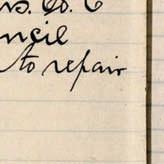 s. Co. C
ncil
to repair